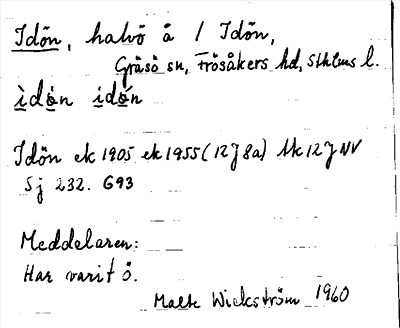 Idön, halvö å / Idön,
Gräsö sn, Frösåkers hd, Sthlms l.
ìdo̱n ido̱n
Idön ek 1905 ek 1955 (12J 8a) tk 12J NV
Sj 232. G93
Meddelaren:
Har varit ö.
Malte Wickström 1960